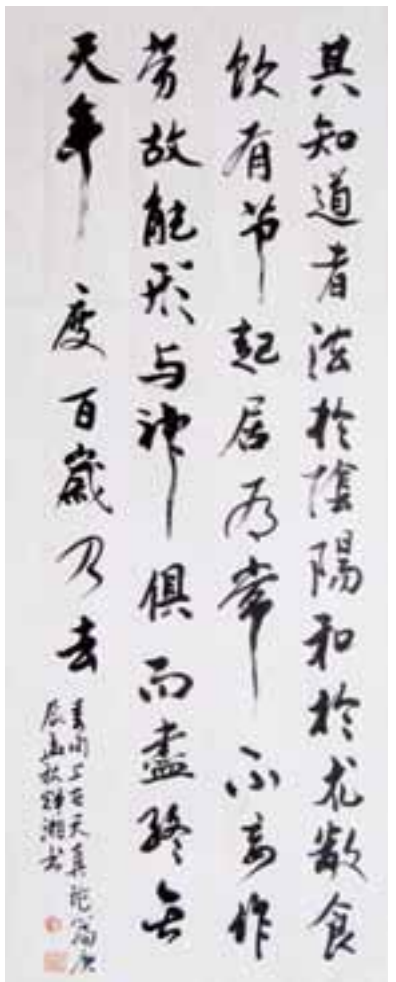 其知道者法於陰陽和於术数食
饮有节起居有常不妄作
劳故能形与神俱而盡終其
天年度百歲乃去
素问上古天真论篇庚
辰孟秋湘书